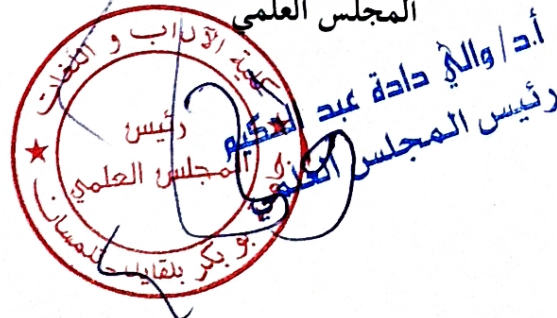 المجلس العلمي
كلية الآداب و اللغات
رئيس
المجلس العلمي
بو بكر بلقايد تلمسان
أ.د/ والي دادة عبد الحكيم
رئيس المجلس العلمي